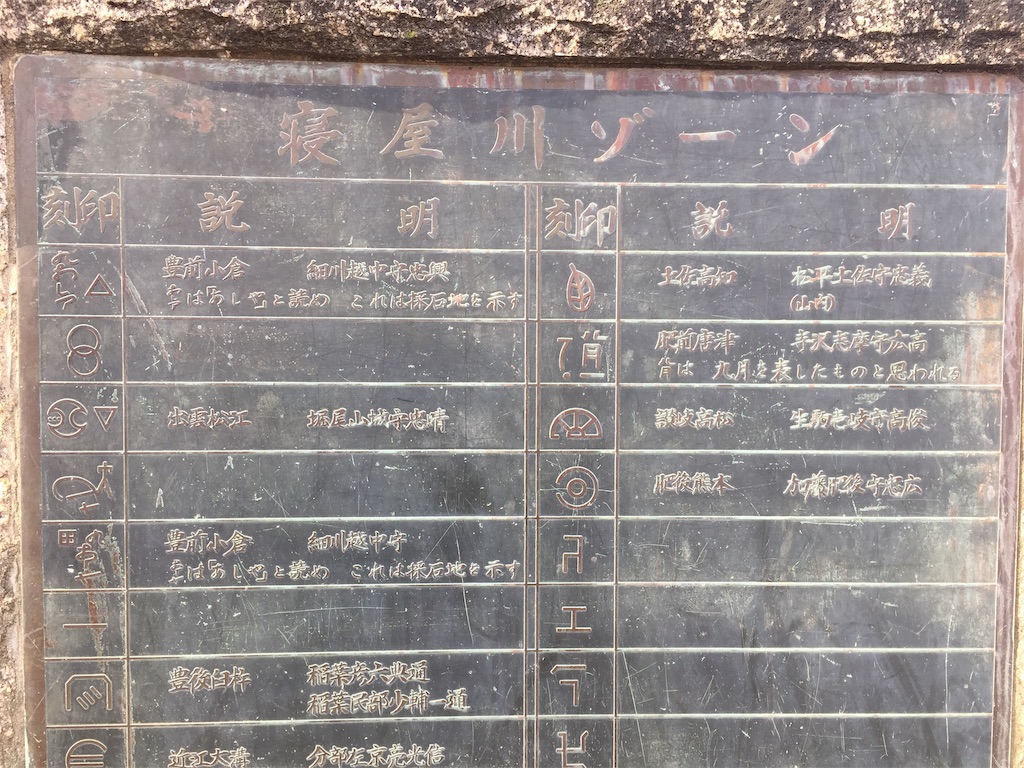 寝屋川ゾーン
刻印 説明 刻印 説明
豊前小倉 細川越中守忠興
はあしやと読め これは採石地を示す
土佐高知 松平土佐守忠義
(山内)
肥前唐津 寺沢志摩守広高
は 九月を表したものと思われる
出雲松江 堀尾山城守忠晴
讃岐高松 生駒壱岐守高俊
大
肥後熊本 加藤肥後守忠広
田
豊前小倉 細川越中守
はあしやと読め これは採石地を示す
一
エ
豊後臼杵 稲葉彦六典通
稲葉民部少輔一通
近江大溝 分部左京亮光信